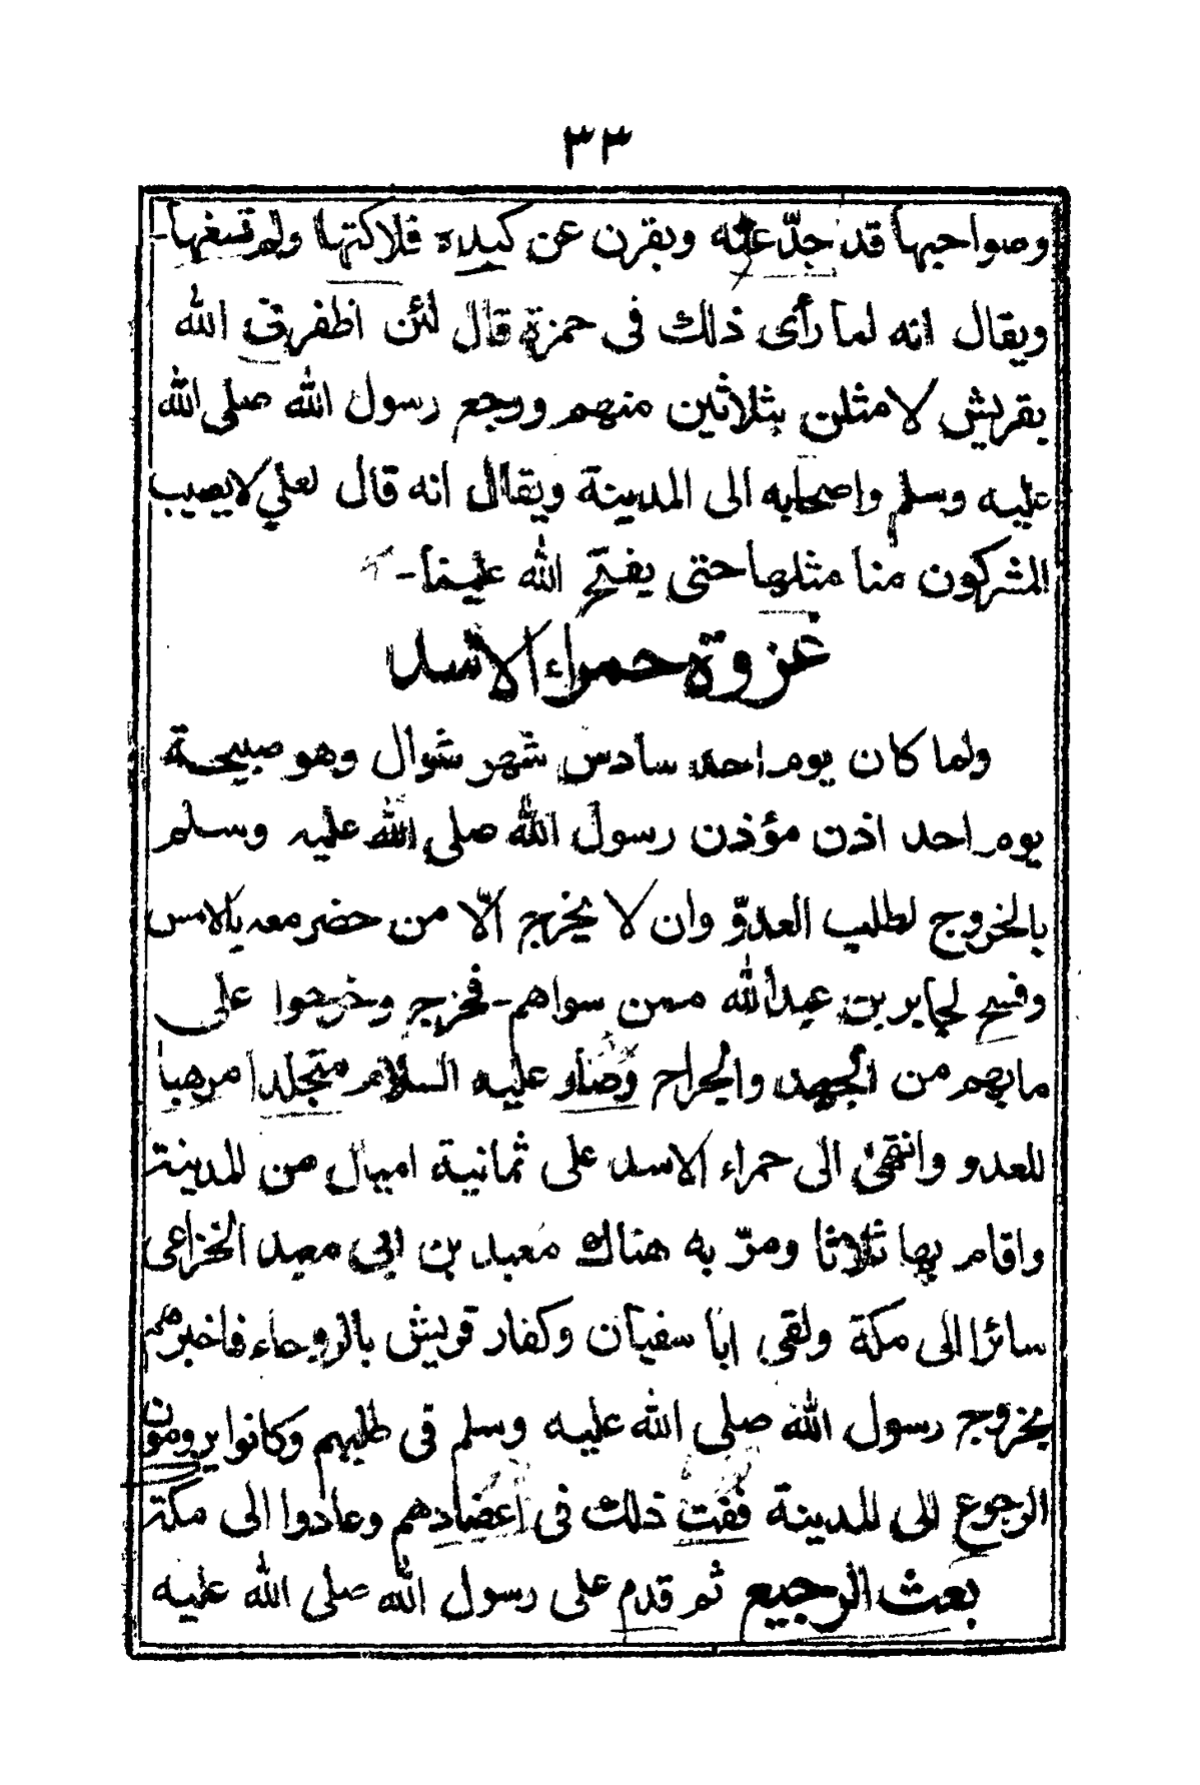 ٣٣
وصواحبها قد جدّعنه وبقرن عن كبده فلاكتها ولم تسغها-
ويقال انه لما رأى ذلك فى حمزة قال لئن اظفرنى الله
بقريش لامثلن بثلاثين منهم ورجع رسول الله صلى الله
عليه وسلم واصحابه الى المدينة ويقال انه قال لعلي لا يصيب
المشركون منا مثلها حتى يفتح الله علينا-
غزوة حمراء الاسد
ولما كان يوم احد سادس شهر شوال وهو صبيحة
يوم احد اذن مؤذن رسول الله صلى الله عليه وسلم
بالخروج لطلب العدوّ وان لا يخرج الّا من حضر معه بالامس
وفسح لجابر بن عبدالله ممن سواهم-فخرج وخرجوا على
ما بهم من الجهد والجراح وصار عليه السلام متجلدا مرهبا
للعدو وانتهى الى حمراء الاسد على ثمانية اميال من المدينة
واقام بها ثلاثا ومرّ به هناك معبد بن ابي معبد الخزاعى
سائرا الى مكة ولقى ابا سفيان وكفار قريش بالروحاء فاخبرهم
بخروج رسول الله صلى الله عليه وسلم فى طلبهم وكانوا يرومون
الرجوع الى المدينة ففت ذلك فى اعضادهم وعادوا الى مكة
بعث الرجيع ثم قدم على رسول الله صلى الله عليه